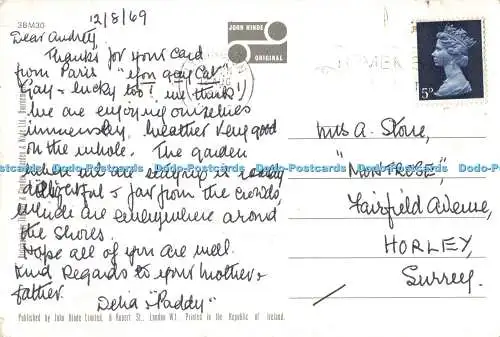 3BM30
12/8/69
JOHN HINDE
ORIGINAL
5D
Dear Audrey,
Thanks for your card
from Paris "you gay Cat"
Gay - lucky too! we think!
We are enjoying ourselves
immensely, weather very good
on the whole. The garden
where we're staying is really
delightful & far from the crowds,
which are everywhere around
the shores.
Hope all of you are well.
Kind Regards to your mother &
father.
Delia & "Paddy"
Mrs A. Stone,
"MONTROSE",
Fairfield Avenue,
HORLEY,
Surrey.
Published by John Hinde Limited, 6 Rupert St., London W1. Printed in the Republic of Ireland.
Dodo-Postcards Dodo-Postcards Dodo-Postcards